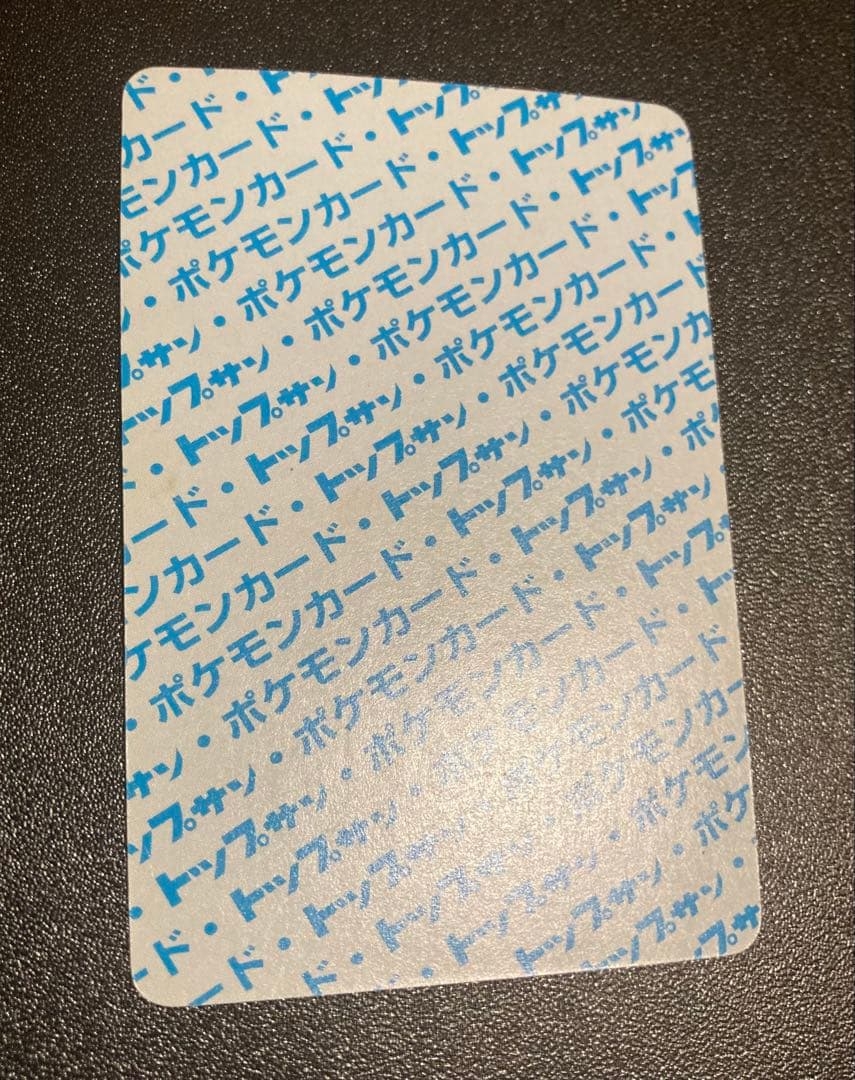 ド・
カード・ト
モンカード・トッ
ポケモンカード・トップ
ン・ポケモンカード・トップサン
プサン・ポケモンカード・トップサン
トップサン・ポケモンカード・トップサ
・トップサン・ポケモンカード・トップ
ード・トップサン・ポケモンカード・ト
ンカード・トップサン・ポケモンカード
ケモンカード・トップサン・ポケモンカ
・ポケモンカード・トップサン・ポケモ
サン・ポケモンカード・トップサン・ポ
ップサン・ポケモンカード・トップサン・
・トップサン・ポケモンカード・トップ
ード・トップサン・ポケモンカード・ト
ード・トップサン・ポケモンカード
ド・トップサン・ポケモンカー
・トップサン・ポケモン
トップサン・ポケ
トップサン・
プサ